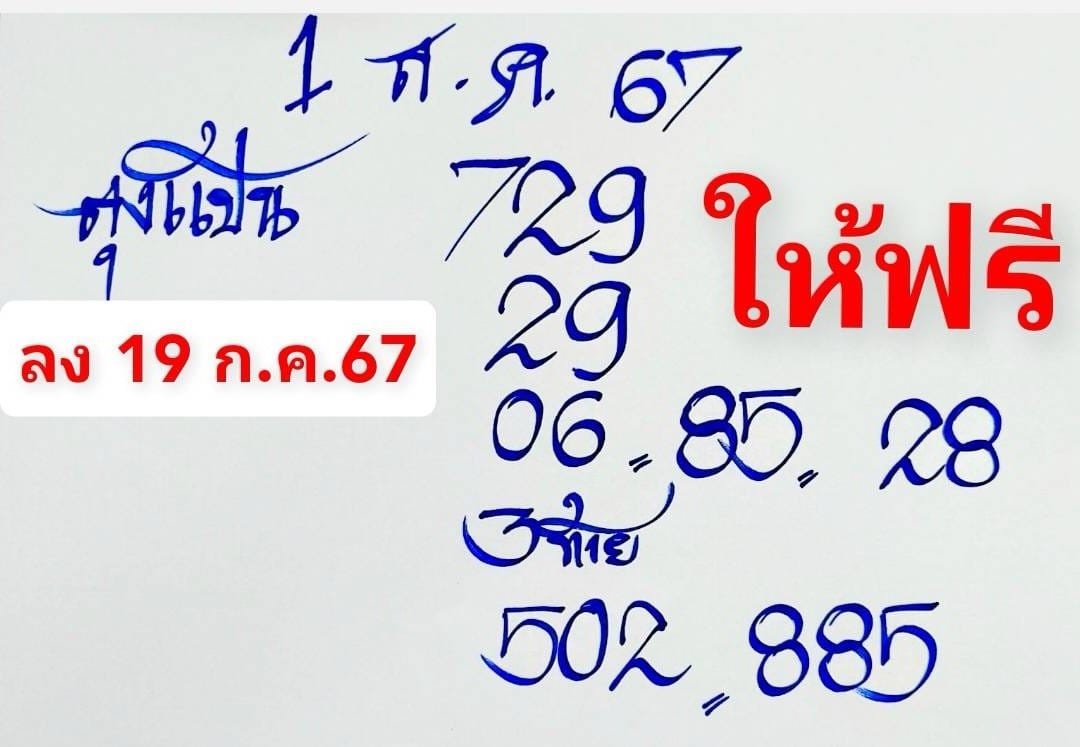 1 ส.ค. 67
729
ให้ฟรี
29
ลง 19 ก.ค.67
06 = 85 = 28
3 ท้าย
502 = 885